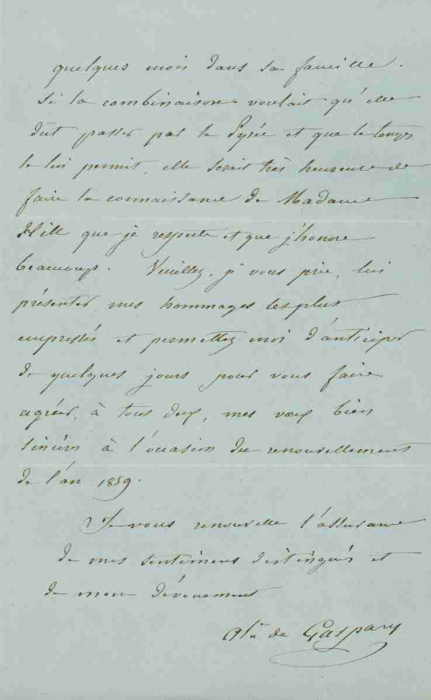 quelques mois dans sa famille.
Si la combinaison voulait qu'elle
dût passer par le Pyrée et que le temps
le lui permit, elle serait très heureuse de
faire la connaissance de Madame
Hill que je respecte et que j'honore
beaucoup. Veuillez, je vous prie, lui
présenter mes hommages les plus
empressés et permettez moi d'anticiper
de quelques jours pour vous faire
agréer, à tous deux, mes vœux bien
sincères à l'occasion du renouvellement
de l'an 1859.
Je vous renouvelle l'assurance
de mes sentimens distingués et
de mon dévouement
de Gaspary